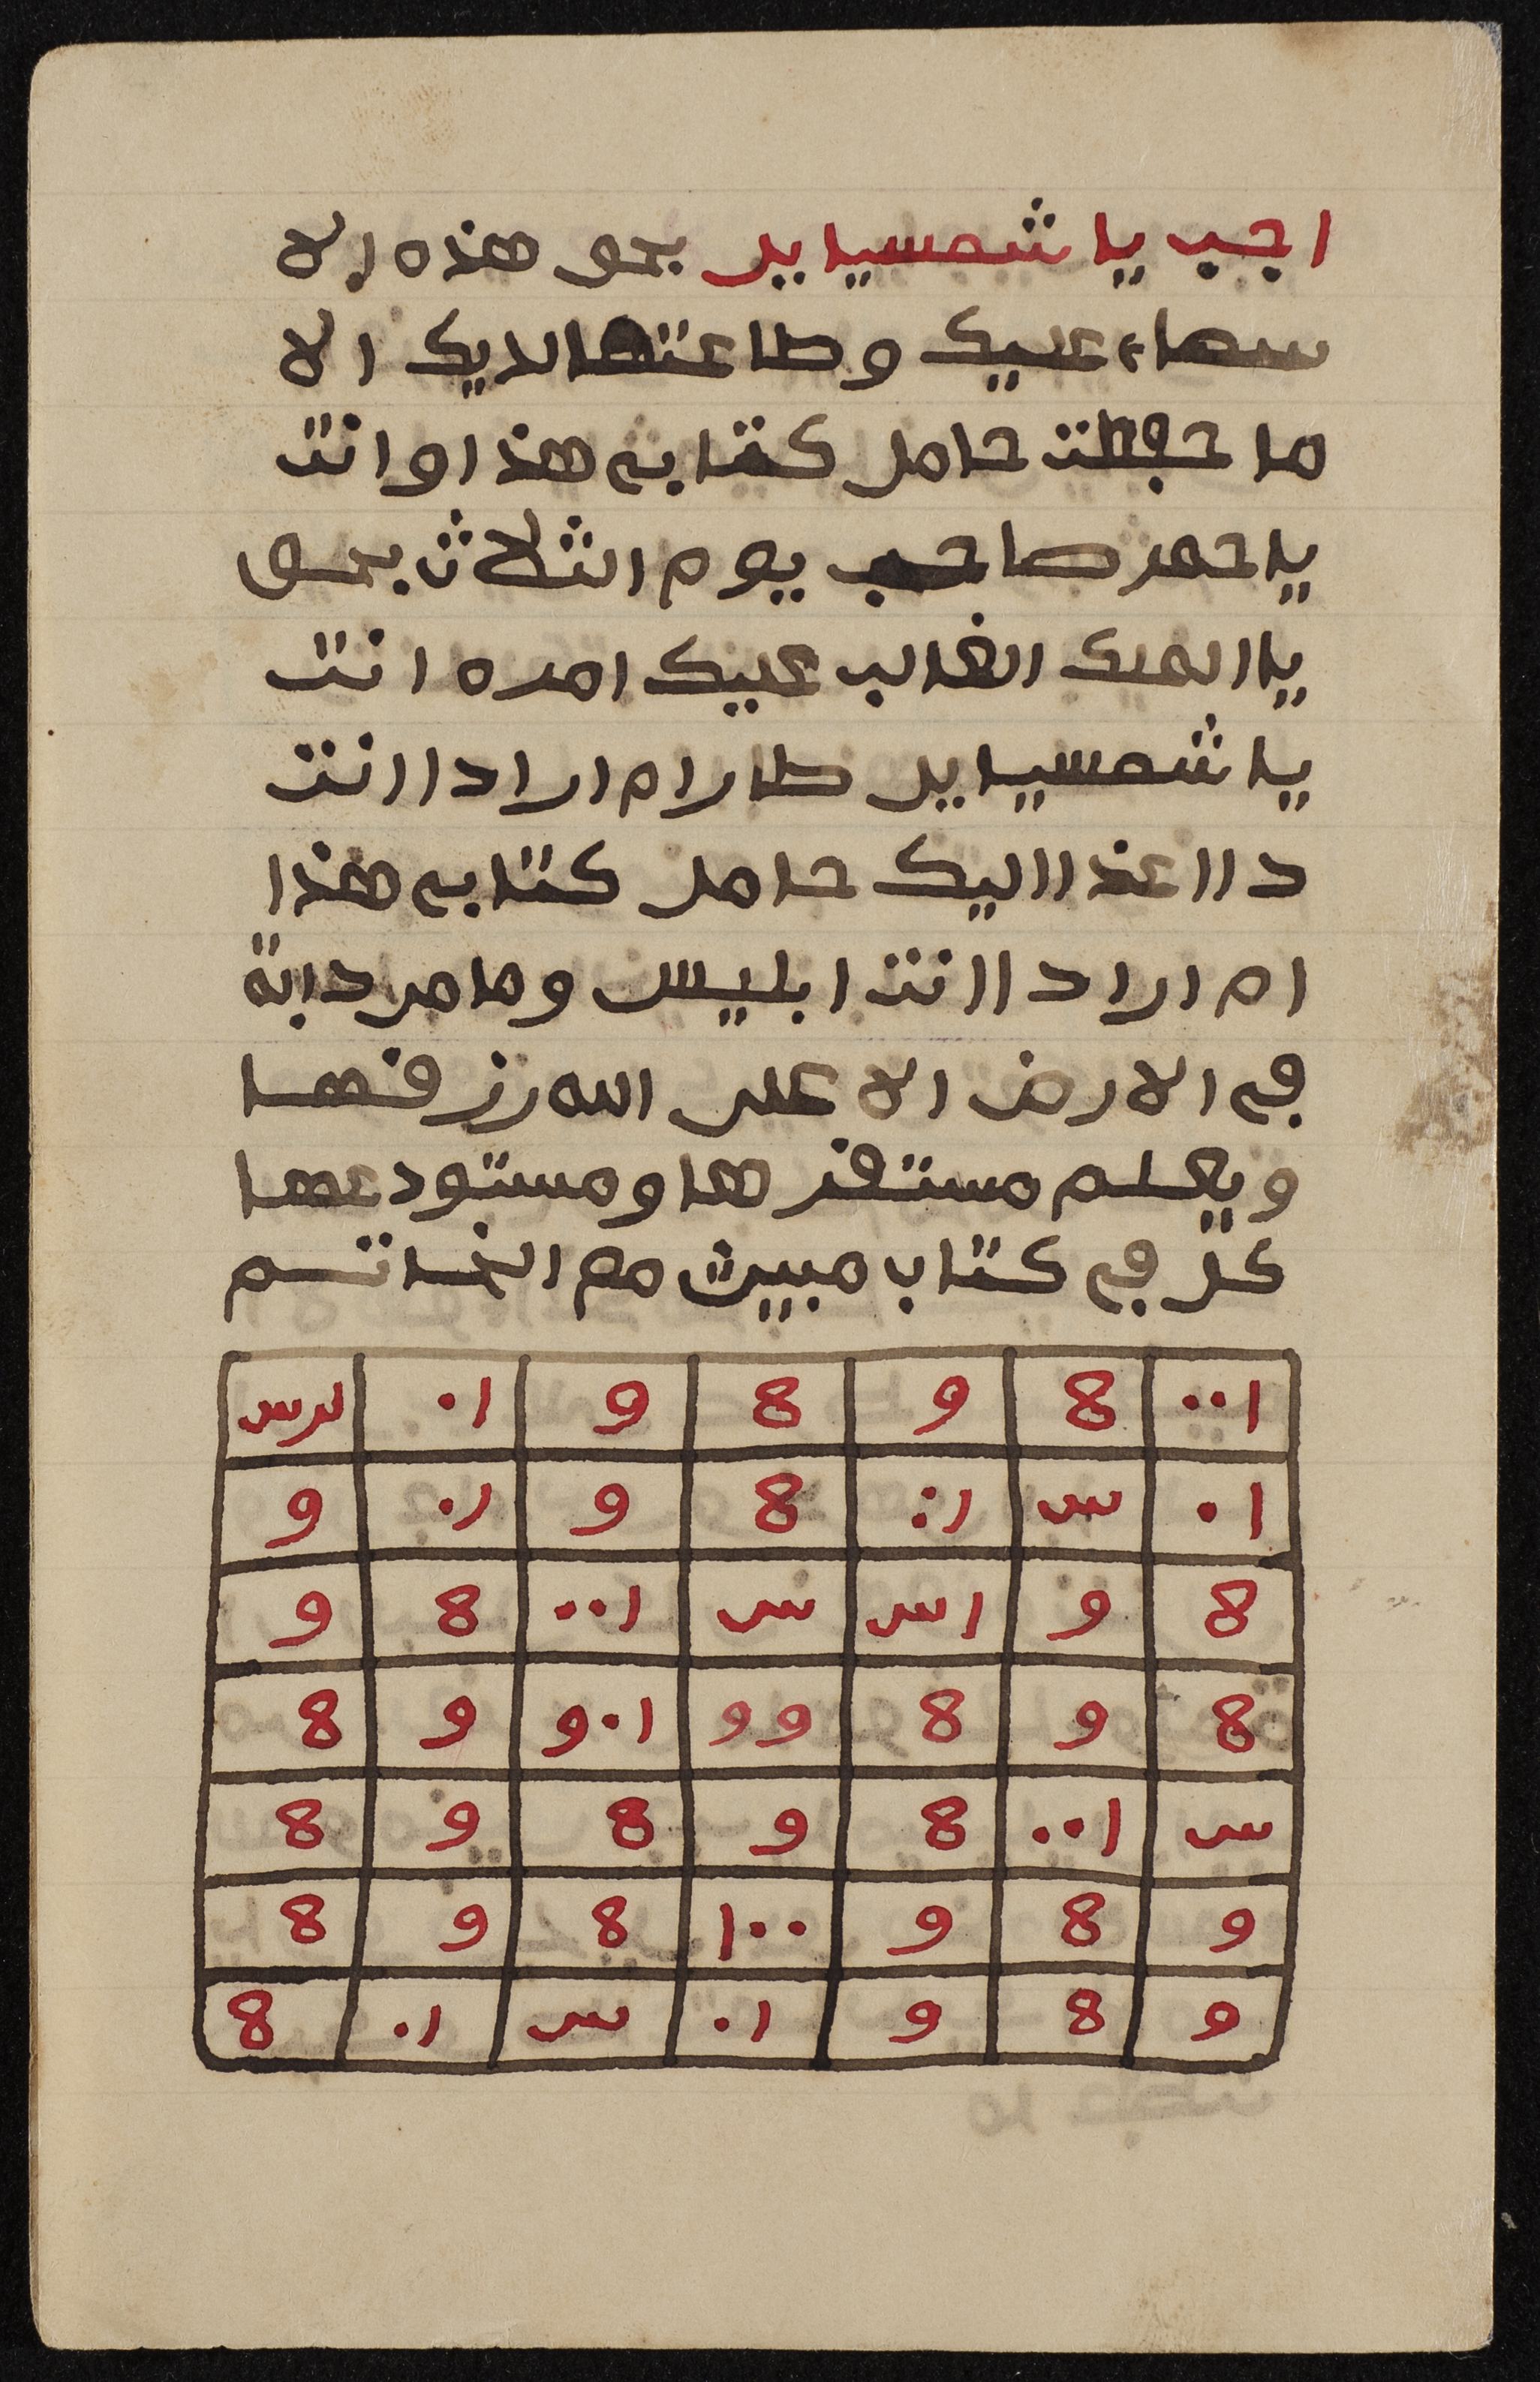 اجب يا شمسيايل بحق هذه الا
سماء عليك وطاعتها لديك الا
ما حفظت حامل كتابي هذا وانت
يا حمر صاحب يوم الثلاث بحق
يا الملك الغالب عليك امره انت
يا شمسيايل طارام اراد اانت
د اا عذ االيك حامل كتابي هذا
ام اراد اانت ابليس وما من دابة
في الارض الا على الله رزقها
ويعلم مستقرها ومستودعها
كل في كتاب مبين مع الخاتم
١٠٠ 8 و 8 و ١٠ سرس
١٠ س ١٠ 8 و ١٠ و
8 و اس س ١٠٠ 8 و
8 و 8 و و ١٠و و 8
س ١٠٠ 8 و 8 و 8
و 8 و ١٠٠ 8 و 8
و 8 و ١٠ س ١٠ 8